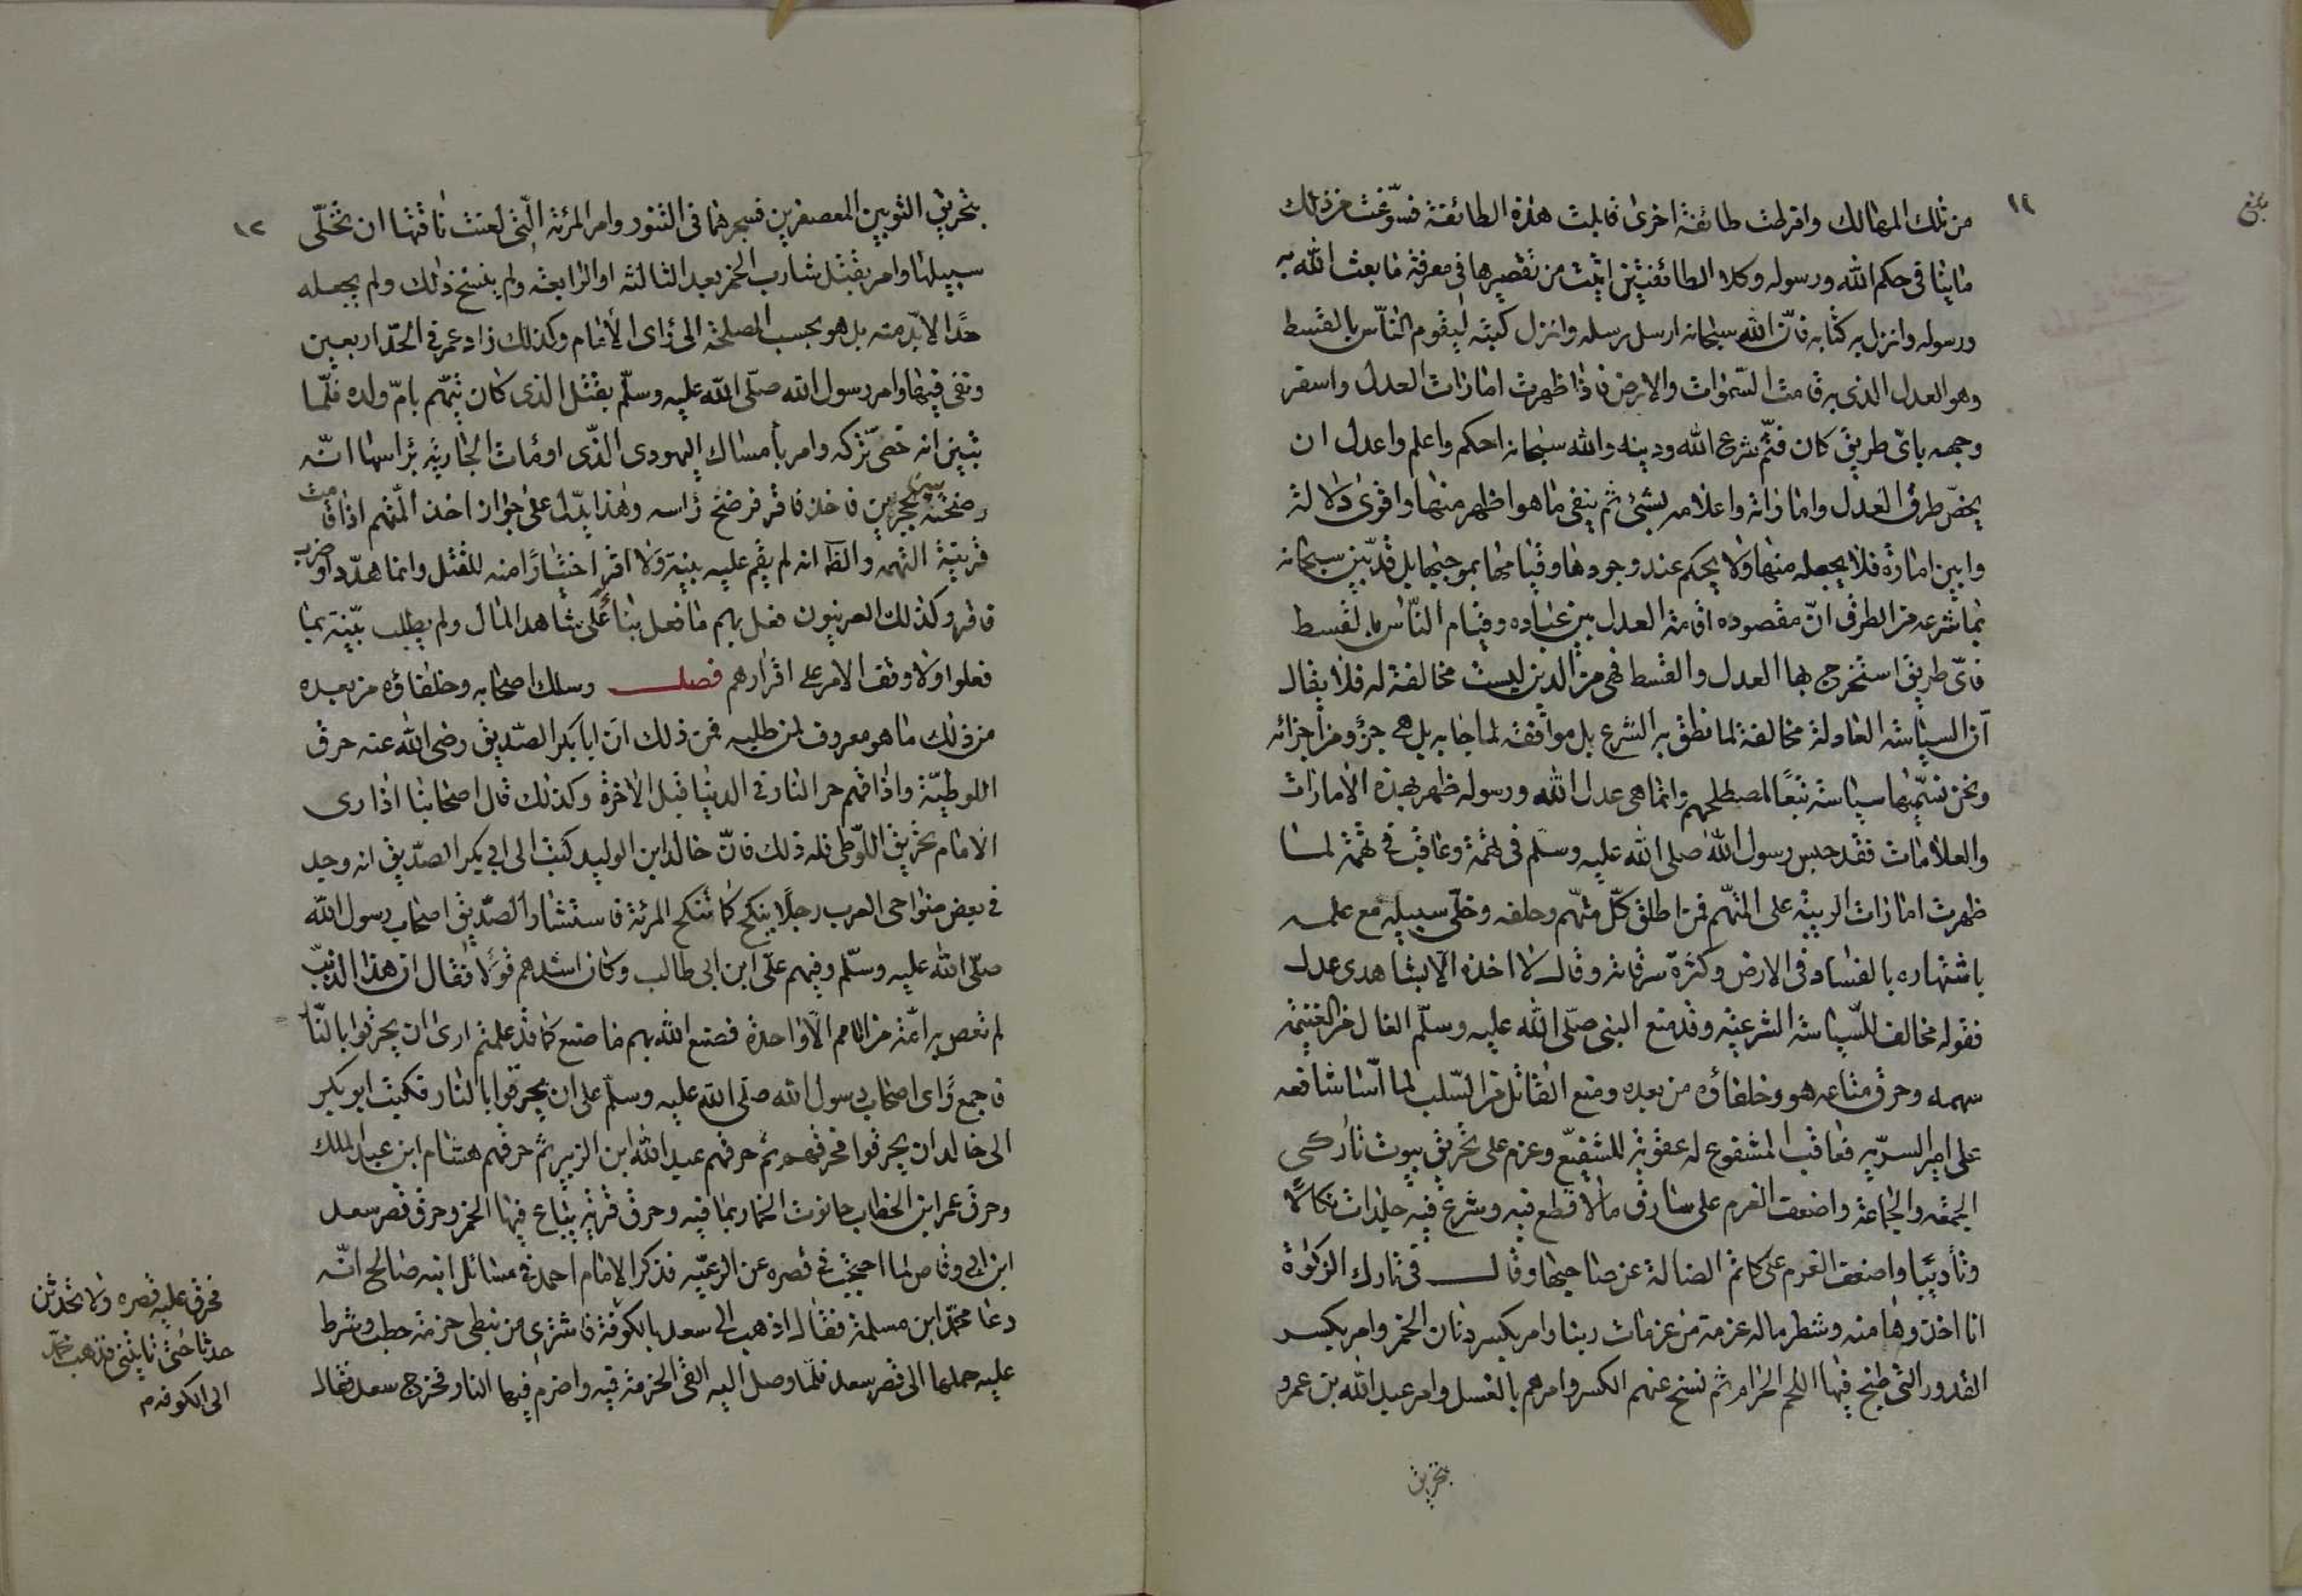 بلغ
١١
من تلك المهالك وافرطت طائفة اخرى قابلت هذه الطائفة فسوّغت من ذلك
ماينافى حكم الله ورسوله وكلا الطائفتين اتيت من تقصيرها فى معرفة ما بعث الله به
ورسوله وانزل به كتابه فانّ الله سبحانه ارسل رسله وانزل كتبه ليقوم النّاس بالقسط
وهو العدل الذى به قامت السّموات والارض فاذا ظهرت امارات العدل واسفر
وجهه باىّ طريق كان فثمّ شرع الله ودينه والله سبحانه احكم واعلم واعدل ان
يخصّ طرق العدل واماراته واعلامه بشئ ثم ينفى ما هو اظهر منها واقوى دلالة
وابين امارة فلا يجعله منها ولا يحكم عند وجودها وقيامها بموجبها بل قد بيّن سبحانه
بما شرعه من الطرق انّ مقصوده اقامة العدل بين عباده وقيام النّاس بالقسط
فاىّ طريق استخرج بها العدل والقسط فهى من الدين ليست مخالفة له فلا يقال
انّ السياسة العادلة مخالفة لما نطق به الشرع بل موافقة لما جا به بل هى جزؤ من اجزائه
ونحن نسمّيها سياسة تبعًا لمصطلحهم وانما هى عدل الله ورسوله ظهر بهذه الامارات
والعلامات فقد حبس رسول الله صلى الله عليه وسلّم فى تهمة وعاقب فى تهمة لما
ظهرت امارات الريبة على المتّهم فمن اطلق كلّ متّهم وحلفه وخلّى سبيله مع علمه
باشتهاره بالفساد فى الارض وكثرة سرقاته وقال لا اخذه الّا بشاهدى عدل
فقوله مخالف للسّياسة الشرعية وقد منع النبى صلّى الله عليه وسلّم الغال من الغنيمة
سهمه وحرق متاعه هو وخلفاؤه من بعده ومنع القاتل من السّلب لما اسّا شافعه
على امير السرّية فعاقب المشفوع له عقوبة للشفيع وعزم على تحريق بيوت تاركى
الجمعة والجماعة واضعف الغرم على سارق مالا قطع فيه وشرع فيه جلدات نكالًا
وتأديبًا واضعف الغرم على كاتم الضالة عن صاحبها وقال فى تارك الزكوة
انا اخذوها منه وشطر ماله عزمة من عزمات ربنا وامر بكسر دنان الخمر وامر بكسر
القدور التى طبخ فيها اللحم الحرام ثم نسخ عنهم الكسر وامرهم بالغسل وامر عبد الله بن عمرو
بتحريق
١٢
بتحريق الثوبين المعصفرين فسجرهما فى التنور وامر المرئة الّتى لعنت ناقتها ان تخلّى
سبيلها وامر بقتل شارب الخمر بعد الثالثة او الرابعة ولم ينسخ ذلك ولم يجعله
حدًا لا بدّ منه بل هو بحسب المصلحة الى رأى الأمام وكذلك زاد عمر فى الحدّ اربعين
ونفى فيها وامر رسول الله صلّى الله عليه وسلّم بقتل الذى كان يتّهم بامّ ولده فلمّا
تبين انه خصىّ تركه وامر بأمساك اليهودى الذّى اومأت الجارية برأسها انّه
رضخته بين حجرين فاخذ فاقر فرضخ رأسه وهذا يدّل على جواز اخذ المتّهم اذا قامت
قرينة التهمه والظا انه لم يقم عليه بينة ولا اقر اختيارًا منه للقتل وانما هدّد او ضرب
فاقر وكذلك العرنيون فعل بهم ما فعل بناءً على شاهد المال ولم يطلب بيّنة بما
فعلوا ولا وقف الامر على اقرارهم فصل وسلك اصحابه وخلفاؤه من بعده
من ذلك ما هو معروف لمن طلبه فمن ذلك انّ ابا بكر الصّديق رضى الله عنه حرق
اللوطيّة واذاقهم حر النار فى الدنيا قبل الاخرة وكذلك قال اصحابنا اذا رى
الامام تحريق اللّوطى فله ذلك فانّ خالد ابن الوليد كتب الى ابى بكر الصّديق انه وجد
فى بعض منواحى العرب رجلًا ينكح كما تنكح المرئة فاستشار الصّديق اصحاب رسول الله
صلّى الله عليه وسلّم وفيهم علّى ابن ابى طالب وكان اشدهم قولًا فقال ان هذا الذنب
لم تعص به امّة من الامم الّا واحدة فصنع الله بهم ما صنع كما قد علمتم ارى ان يحرقوا بالنّا
فاجمع رأى اصحاب رسول الله صلّى الله عليه وسلّم على ان يحرقوا بالنار فكتب ابو بكر
الى خالد ان يحرقوا فحرقهم ثم حرقهم عبد الله ابن الزبير ثم حرقهم هشام ابن عبد الملك
وحرق عمر ابن الخطاب حانوت الخمار بما فيه وحرق قرية يباع فيها الخمر وحرق قصر سعد
ابن ابى وقاص لما احتجب فى قصره عن الرعيّه فذكر الامام احمد فى مسائل ابنه صالح انّه
دعا محمّد ابن مسلمة فقال اذهب الى سعد بالكوفة فاشترى من نبطى حزمة حطب وشرط
عليه حملها الى قصر سعد فلمّا وصل اليه القى الحزمة فيه واضرم فيها النار فخرج سعد فقال
فحرق عليه قصره ولا تحدثن
حدثا حتى تاتينى فذهب محمّد
الى الكوفه م